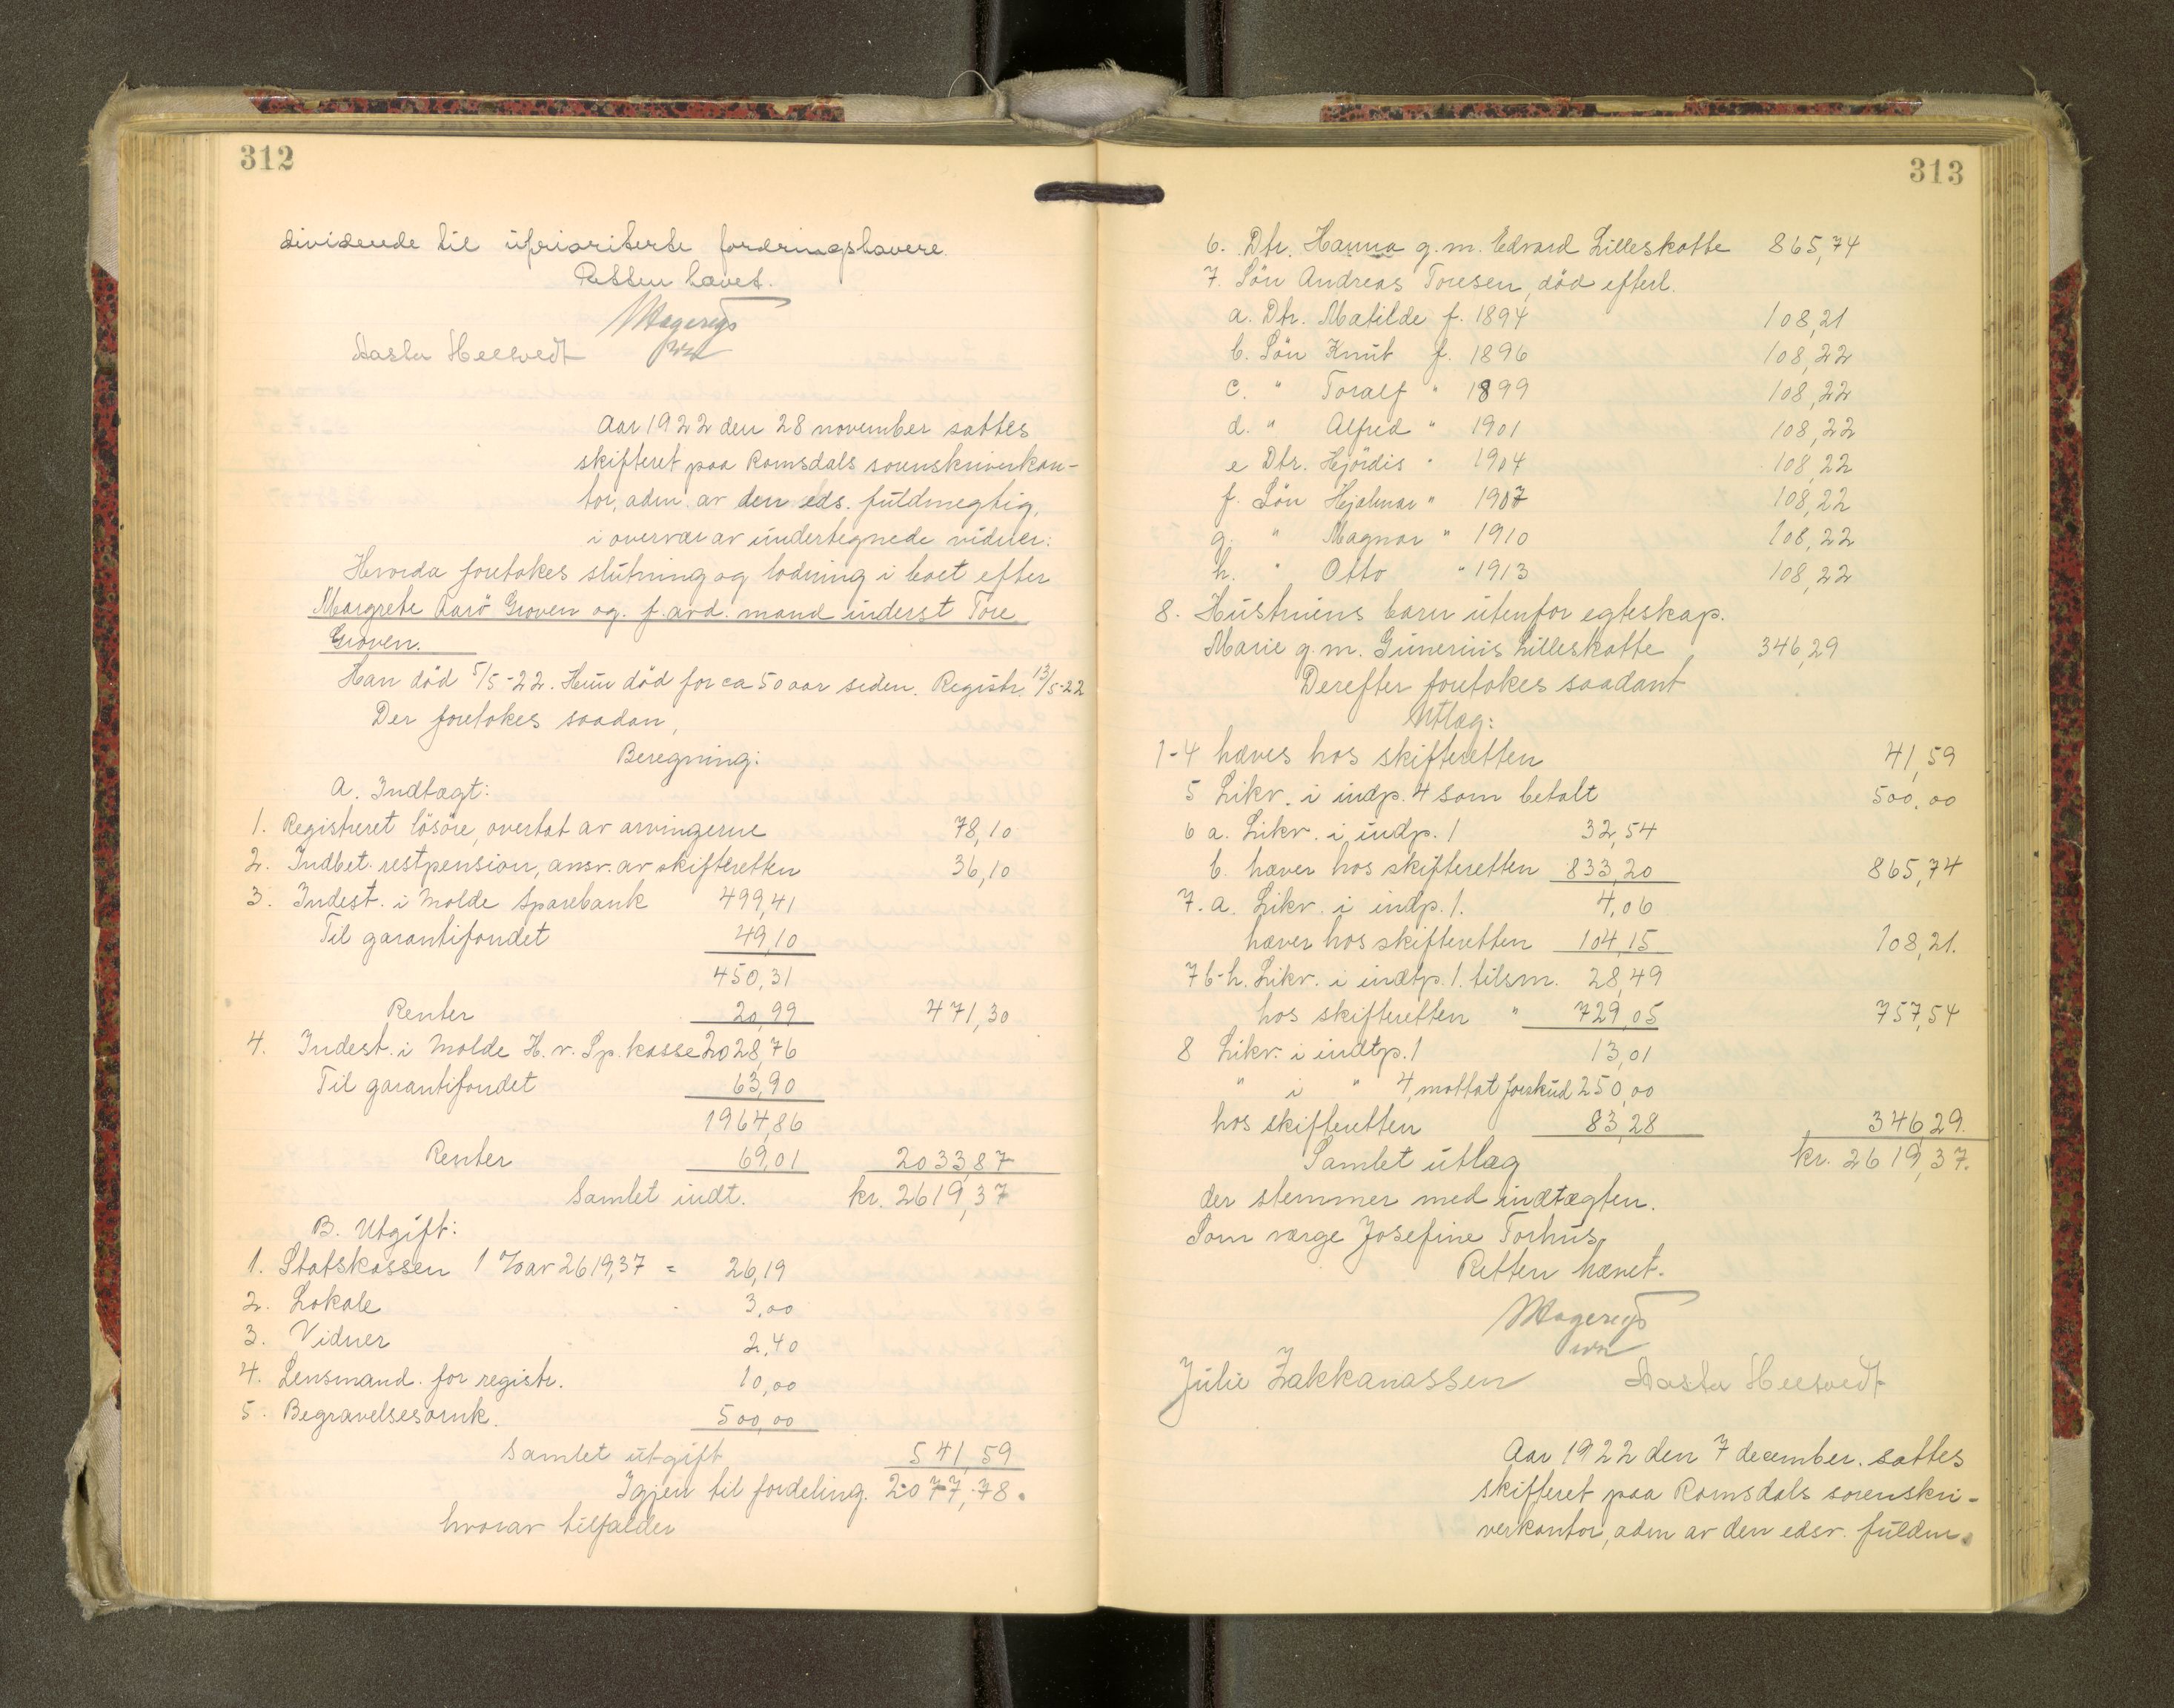 312
dividende til uprioriterte fordringshavere.
Retten hævet.
Aasta
Aar 1922 den 28 november sattes
skifteret paa Romsdals sorenskriverkon-
tor, adm. av den eds. fuldmegtig,
i overvær av undertegnede vidner:
Hvorda foretokes slutning og lodning i boet efter
Margrete Aarö Groven og f. avd. mand inderst Tore
Groven.
Han död 5/5-22. Hun död for ca 50 aar siden. Registr. 13/5-22
Der foretokes saadan,
Beregning:
A. Indtægt:
1. Registreret lösöre, overtat av arvingerne 78,10
2. Indbet. restpension, ansv. av skifteretten 36,10
3. Indest. i Molde Sparebank 499,41
Til garantifondet 49,10
450,31
Renter 20,99 471,30
4. Indest. i Molde H. v. Sp. kasse 2028,76
Til garantifondet 63,90
1964,86
Renter 69,01 2033,87
Samlet indt. kr. 2619,37
B. Utgift:
1. Statskassen 1 % av 2619,37 = 26,19
2. Lokale 3,00
3. Vidner 2,40
4. Lensmand. for registr. 10,00
5. Begravelsesomk. 500,00
Samlet utgift 541,59
Igjen til fordeling. 2077,78.
hvorav tilfalder
313
6. Dtr. Hanna g. m. Edvard Lilleskatte 865,74
7. Sön Andreas Toresen, död efterl.
a. Dtr. Matilde f. 1894 108,21
b. Sön Knut f. 1896 108,22
c. " Toralf " 1899 108,22
d. " Alfred " 1901 108,22
e Dtr. Hjördis " 1904 108,22
f. Sön Hjalmar " 1907 108,22
g. " Magnar " 1910 108,22
h. " Otto " 1913 108,22
8. Hustruens barn utenfor egteskap.
Marie g. m. Gunerius Lilleskatte 346,29
Derefter foretokes saadant
Utlæg:
1-4 hæves hos skifteretten 41,59
5 Likv. i indp. 4 som betalt 500,00
6 a. Likv. i indp. 1 32,54
b. hæver hos skifteretten 833,20 865,74
7. a. Likv. i indp. 1. 4,06
hæver hos skifteretten 104,15 108,21.
7 b-h. Likv. i indtp. 1. tilsm. 28,49
hos skifteretten " 729,05 757,54
8 Likv. i indtp. 1 13,01
" i " 4, mottat forskud 250,00
hos skifteretten 83,28 346,29.
Samlet utlæg kr. 2619,37.
der stemmer med indtægten.
Som værge Josefine Torhus,
Retten hævet.
Julie Zakkanassen Aasta
Aar 1922 den 7 december. sattes
skifteret paa Romsdals sorenskri-
verkontor, adm av den edsv. fuldm.